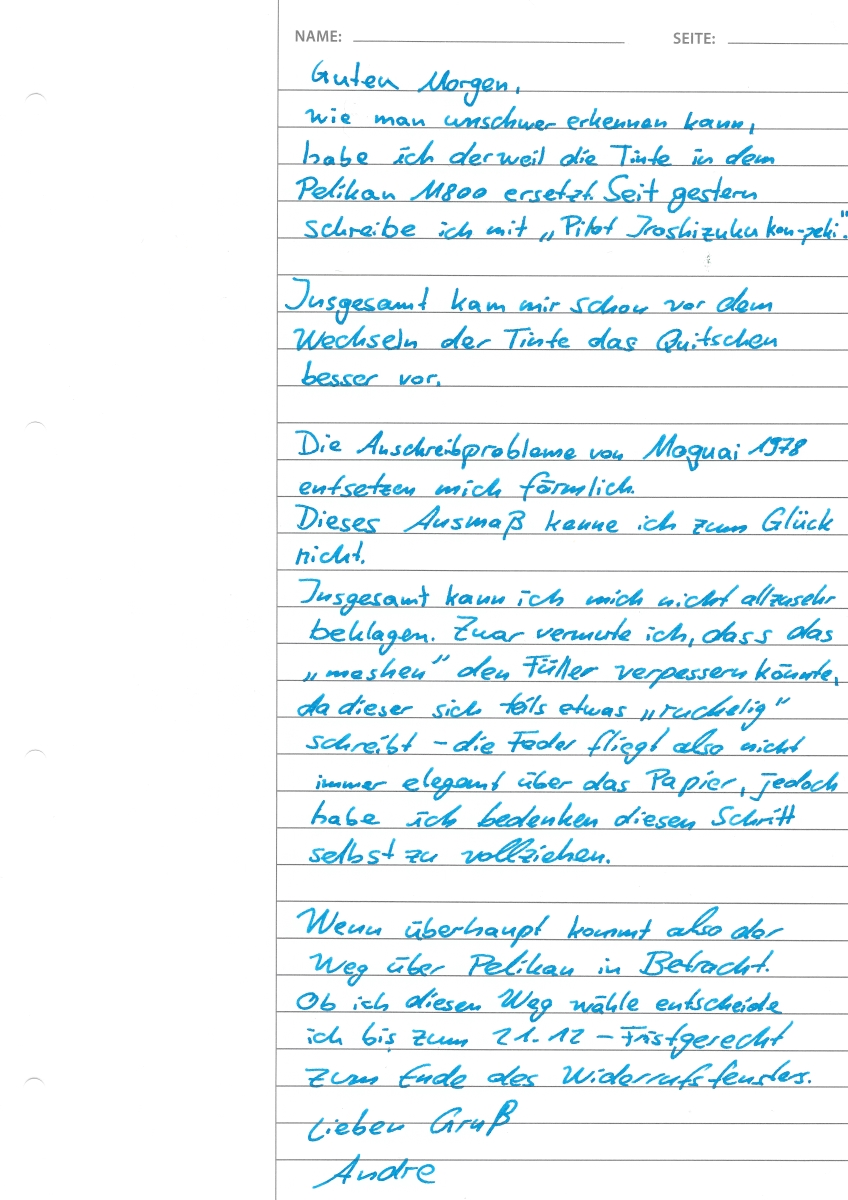 NAME: SEITE:
Guten Morgen,
wie man unschwer erkennen kann,
habe ich derweil die Tinte in dem
Pelikan M800 ersetzt. Seit gestern
schreibe ich mit „Pilot Iroshizuku kon-peki".
Insgesamt kam mir schon vor dem
Wechseln der Tinte das Quitschen
besser vor.
Die Anschreibprobleme von Moguai 1978
entsetzen mich förmlich.
Dieses Ausmaß kenne ich zum Glück
nicht.
Insgesamt kann ich mich nicht allzusehr
beklagen. Zwar vermute ich, dass das
„meshen" den Füller verpessern könnte,
da dieser sich teils etwas „ruckelig"
schreibt – die Feder fliegt also nicht
immer elegant über das Papier, jedoch
habe ich bedenken diesen Schritt
selbst zu vollziehen.
Wenn überhaupt kommt also der
Weg über Pelikan in Betracht.
Ob ich diesen Weg wähle entscheide
ich bis zum 21.12 – Fristgerecht
zum Ende des Widerrufsfensters.
Lieben Gruß
Andre